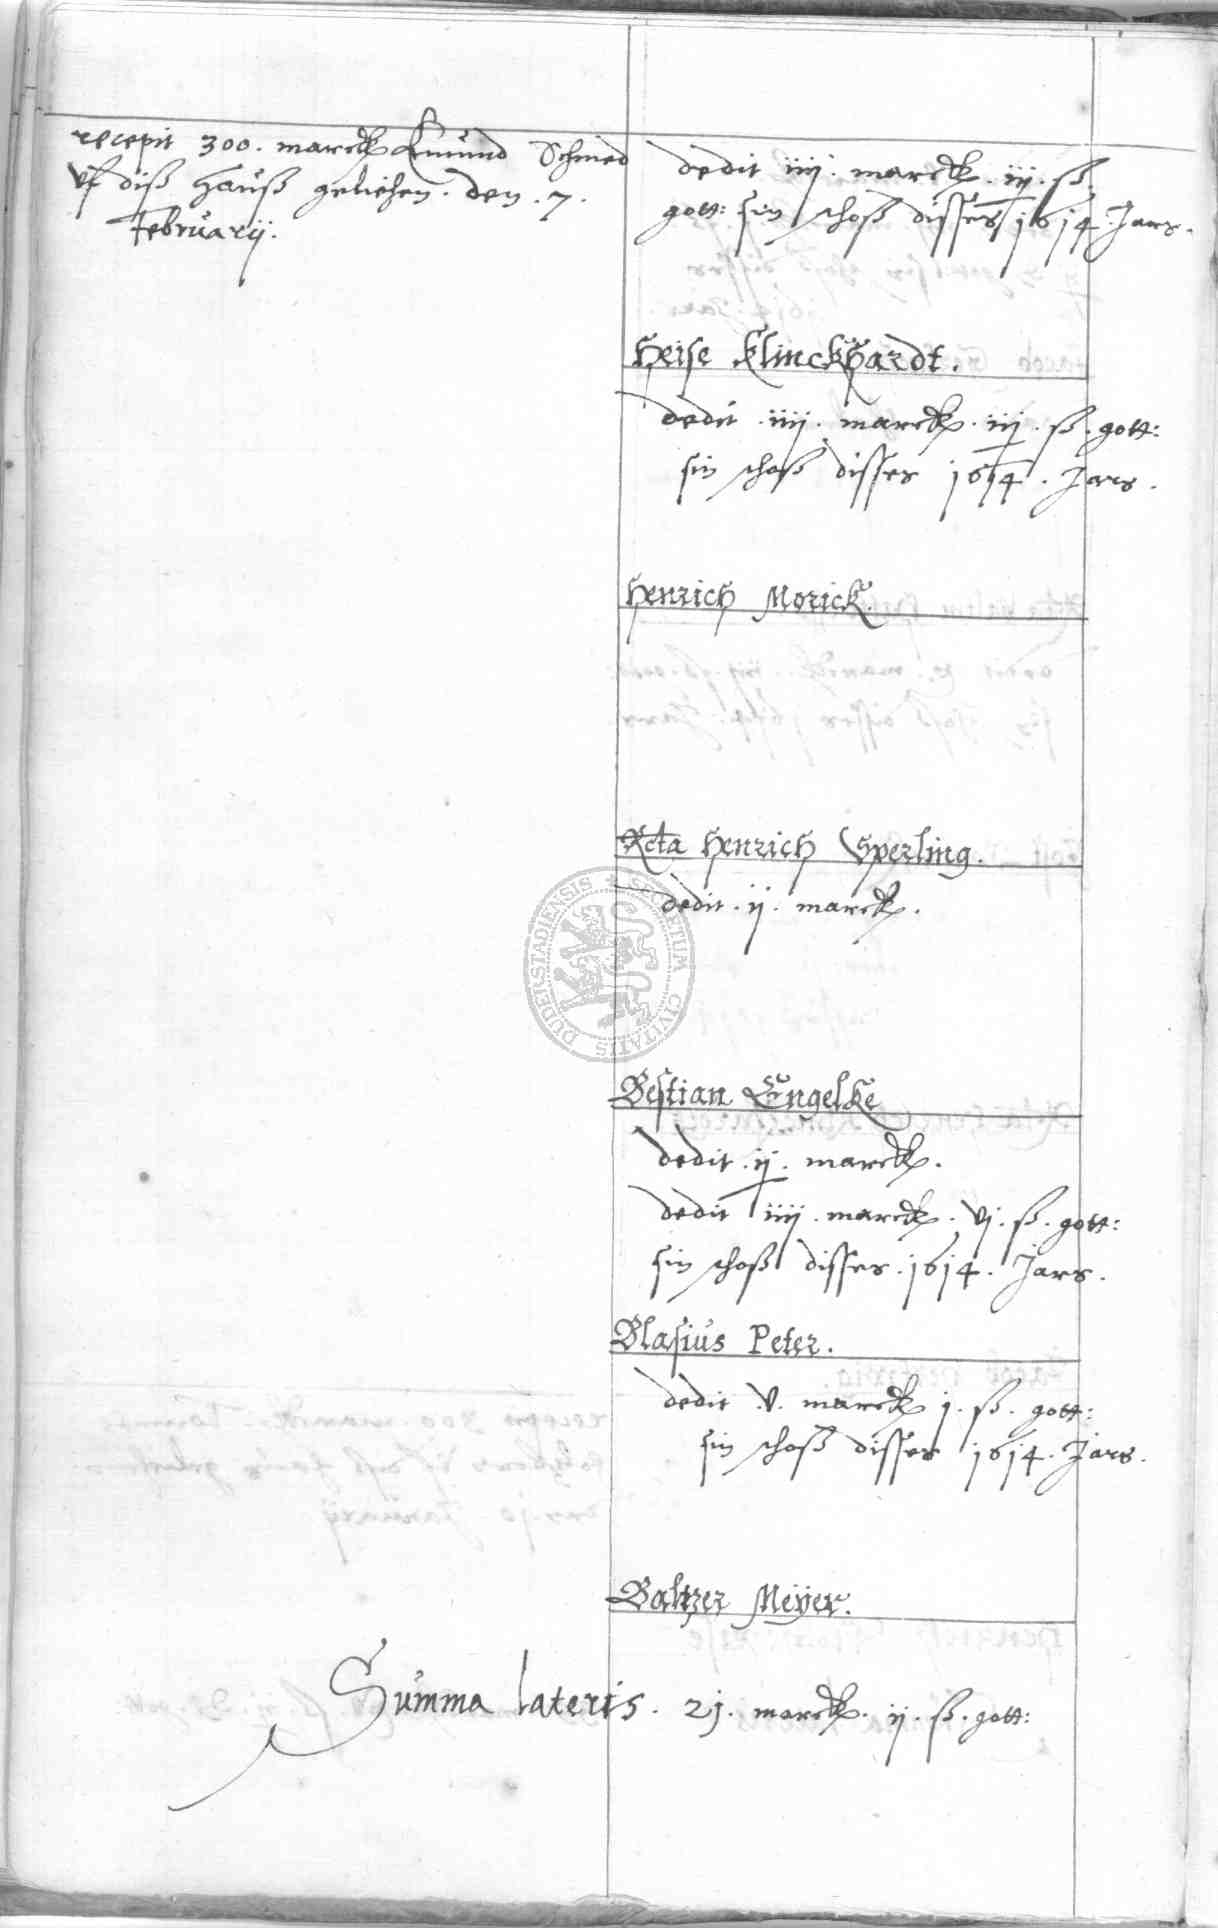 recepit 300. marck Emund Schmed
vf diß Hauß geliehen. den. 7.
Februarij.
dedit iiij. marck. iij. ß.
gott: sin schoß disses 1614. Jars.
Heise Klinckhardt.
dedit. iiij. marck. iij. ß. gott:
sin schoß disses 1614. Jars.
Henrich Morick.
Relicta Henrich Sperling.
dedit. ij. marck.
Bestian Engelke
dedit. ij. marck.
dedit iiij. marck. vj. ß. gott:
sin schoß disses. 1614. Jars.
Blasius Peter.
dedit. v. marck j. ß. gott:
sin schoß disses 1614. Jars.
Baltzer Meyer.
Summa lateris. 21. marck. ij. ß. gott:
SECRETUM CIVITATIS DUDERSTADIENSIS